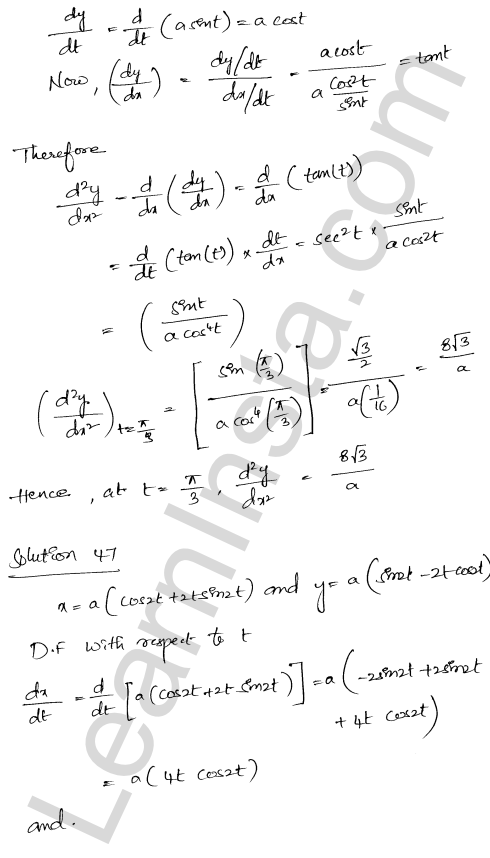 dy/dt = d/dt (a sint) = a cost
Now, (dy/dx) = (dy/dt)/(dx/dt) = a cost/(a cos²t/sint) = tant
Therefore
d²y/dx² - d/dx (dy/dx) = d/dx (tan(t))
= d/dt (tan(t)) × dt/dx = sec²t × sint/(a cos²t)
= (sint/(a cos⁴t))
(d²y/dx²) t=π/3 = [sin(π/3)/(a cos⁴(π/3))] = (√3/2)/(a(1/16)) = 8√3/a
Hence, at t = π/3, d²y/dx² = 8√3/a
Solution 47
x = a(cos2t+2tsin2t) and y = a(sin2t-2tcos2t)
D.F with respect to t
dx/dt = d/dt [a(cos2t+2t sin2t)] = a(-2sin2t+2sin2t
+ 4t cos2t)
= a(4t cos2t)
and.
LearnInsta.com